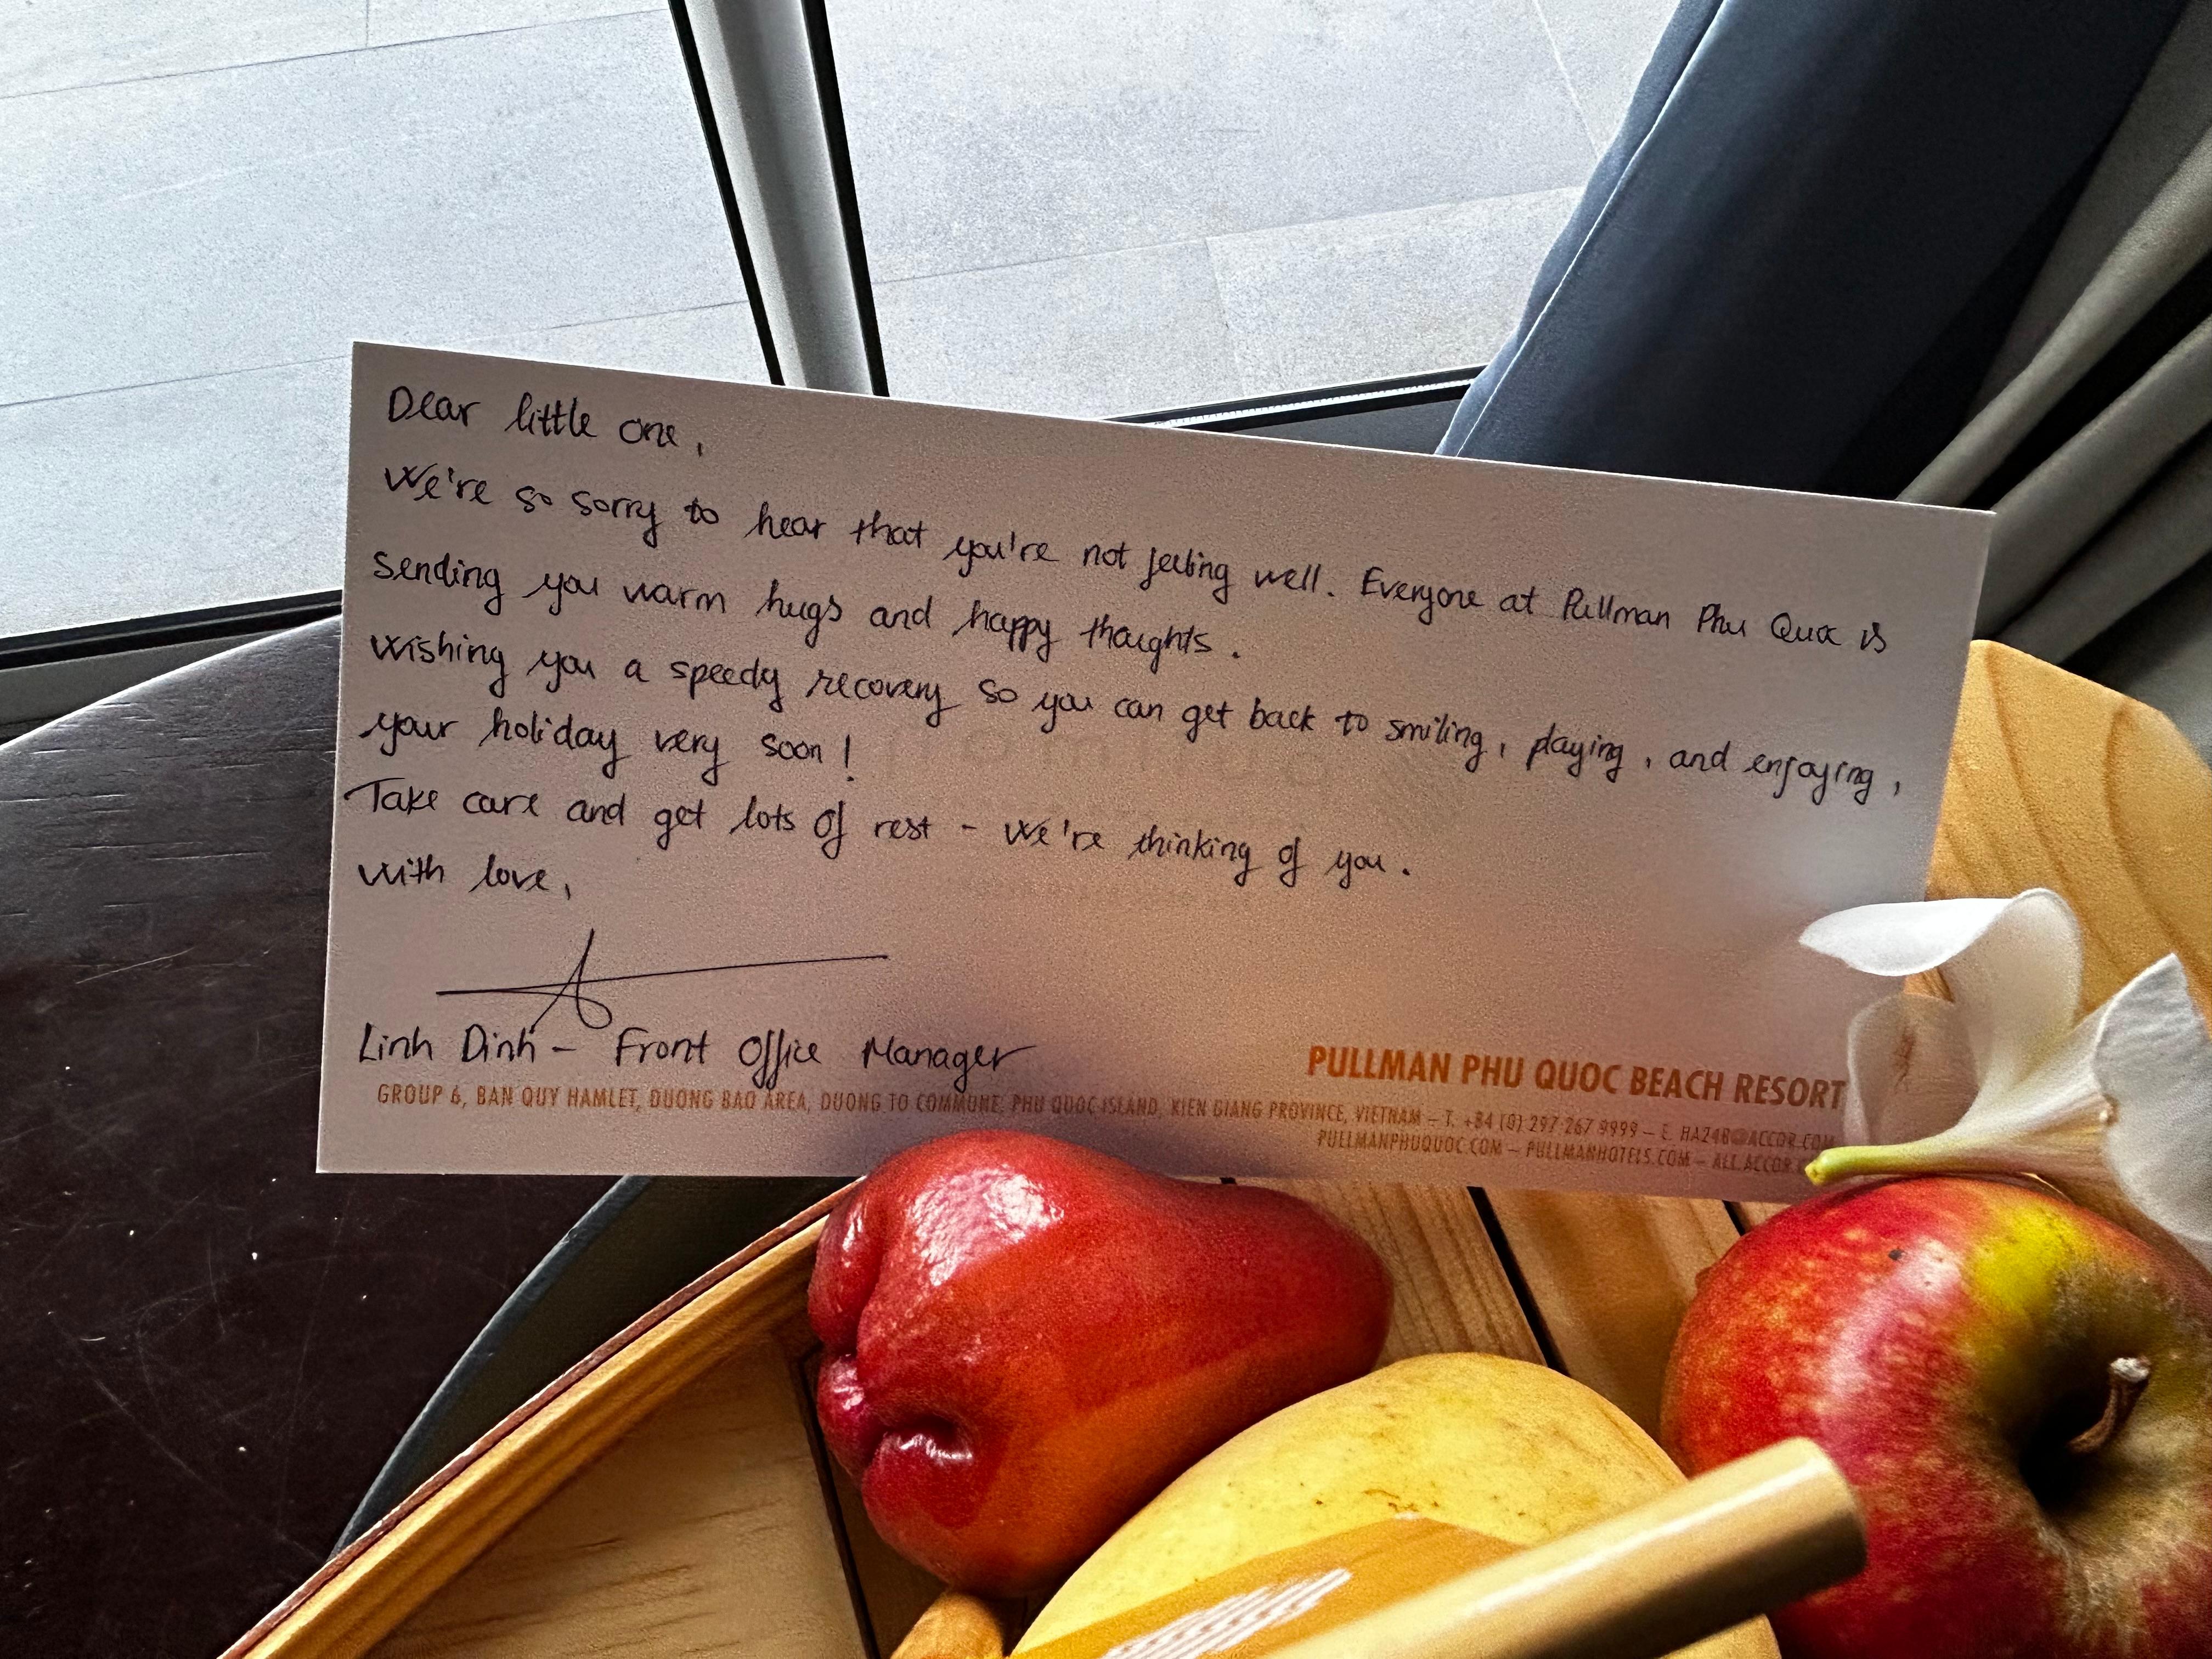 Dear little one,
We're so sorry to hear that you're not feeling well. Everyone at Pullman Phu Quoc is
sending you warm hugs and happy thoughts.
Wishing you a speedy recovery so you can get back to smiling, playing, and enjoying,
your holiday very soon!
Take care and get lots of rest - We're thinking of you.
With love,
Linh Dinh - Front Office Manager
PULLMAN PHU QUOC BEACH RESORT
GROUP 6, BAN QUY HAMLET, DUONG BAO AREA, DUONG TO COMMUNE, PHU QUOC ISLAND, KIEN GIANG PROVINCE, VIETNAM – T. +84 (0) 297 267 9999 – E. HA248@ACCOR.COM
PULLMANPHUQUOC.COM – PULLMANHOTELS.COM – ALL.ACCOR.